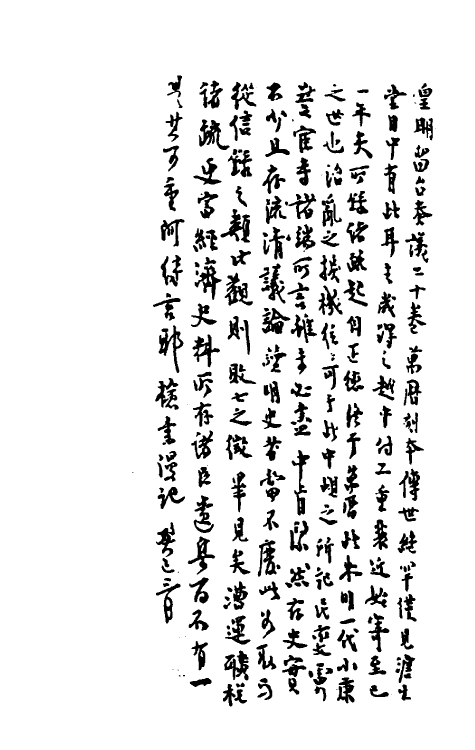 皇明留台奏議二十卷萬曆刻本傳世絕罕僅見澹生
堂目中有此耳辛歲得之越中付工重裝近始寄至已
一年矣所錄諸疏起自正德迄于萬曆此本明一代小康
之世也治亂之樞機往往可于此中覘之所記民變
宦寺諸端所言雖未必盡中肯然在史實
不少且存流清議論證明史葑不廢此
從信錄之類比觀則敗亡之徵畢見矣漕運礦稅
諸疏更富經濟史料所存諸臣遺集百不有一
是其可重何待言耶 書漫記 癸巳三月